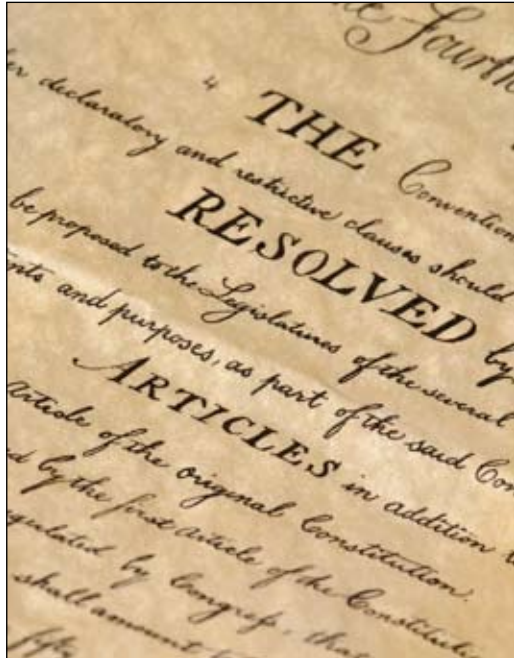 Fourth
" THE Convention
declaratory and restrictive clauses should
RESOLVED by
be proposed to the Legislatures of the several
and purposes, as part of the said Con
ARTICLES in addition
Article of the original Constitution.
by the first article of the Constitution
regulated by Congreſs, that
shall amount
fifty